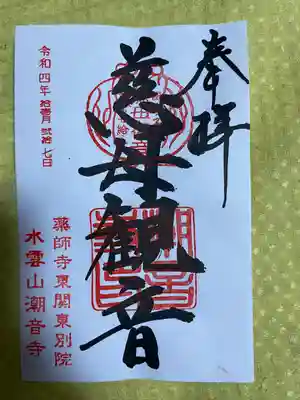 奉拝
慈母観音
令和四年拾壹月弐拾七日
薬師寺東関東別院
水雲山潮音寺